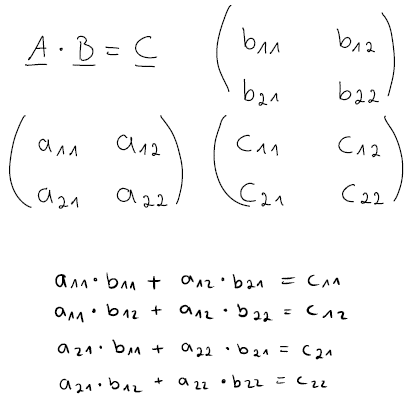 A · B = C
b11 b12
b21 b22
a11 a12
a21 a22
c11 c12
c21 c22
a11 · b11 + a12 · b21 = c11
a11 · b12 + a12 · b22 = c12
a21 · b11 + a22 · b21 = c21
a21 · b12 + a22 · b22 = c22